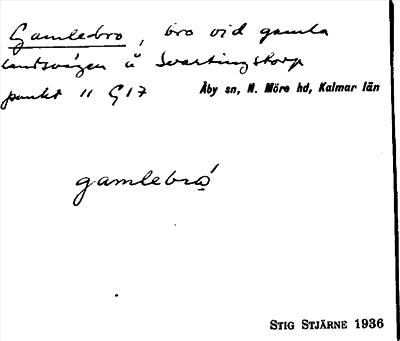 Gamlebro, bro vid gamla
landsvägen å Svartingstorp
punkt 11 G17 Åby sn, N. Möre hd, Kalmar län
gamlebro̲´
STIG STJÄRNE 1936